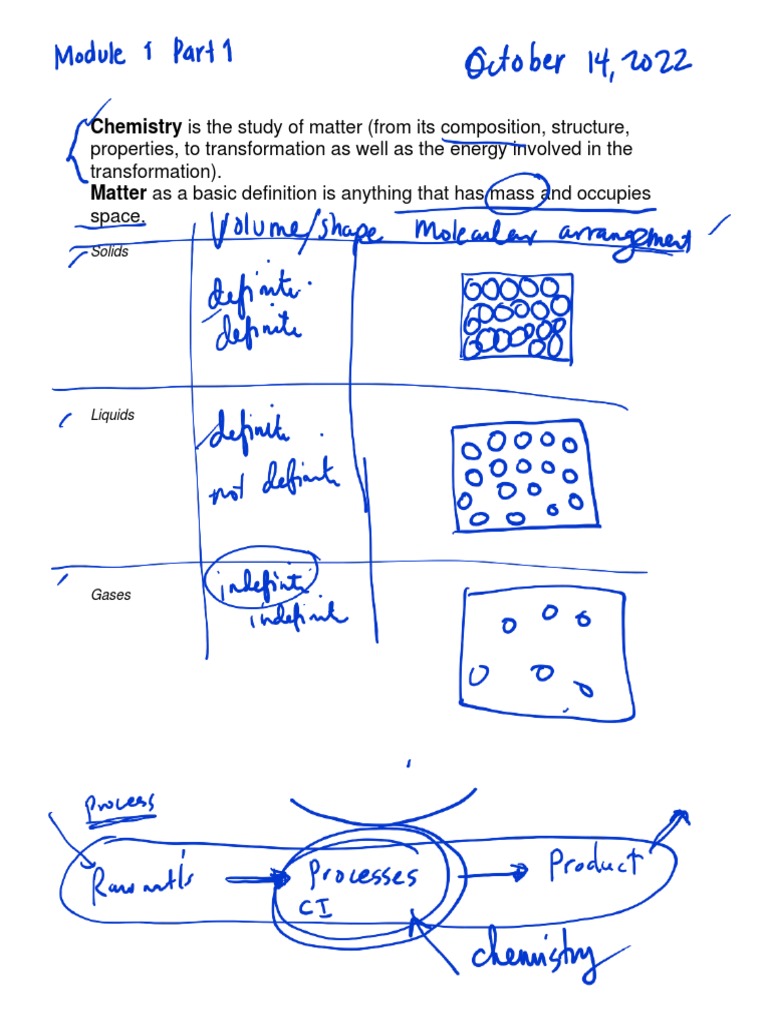 Module 1 Part 1
October 14, 2022
Chemistry is the study of matter (from its composition, structure,
properties, to transformation as well as the energy involved in the
transformation).
Matter as a basic definition is anything that has mass and occupies
space.
Volume/shape
Molecular arrangement
Solids
definite
definite
Liquids
definite
not definite
Gases
indefinite
indefinite
Process
Raw mtl's
Processes
CI
Product
chemistry